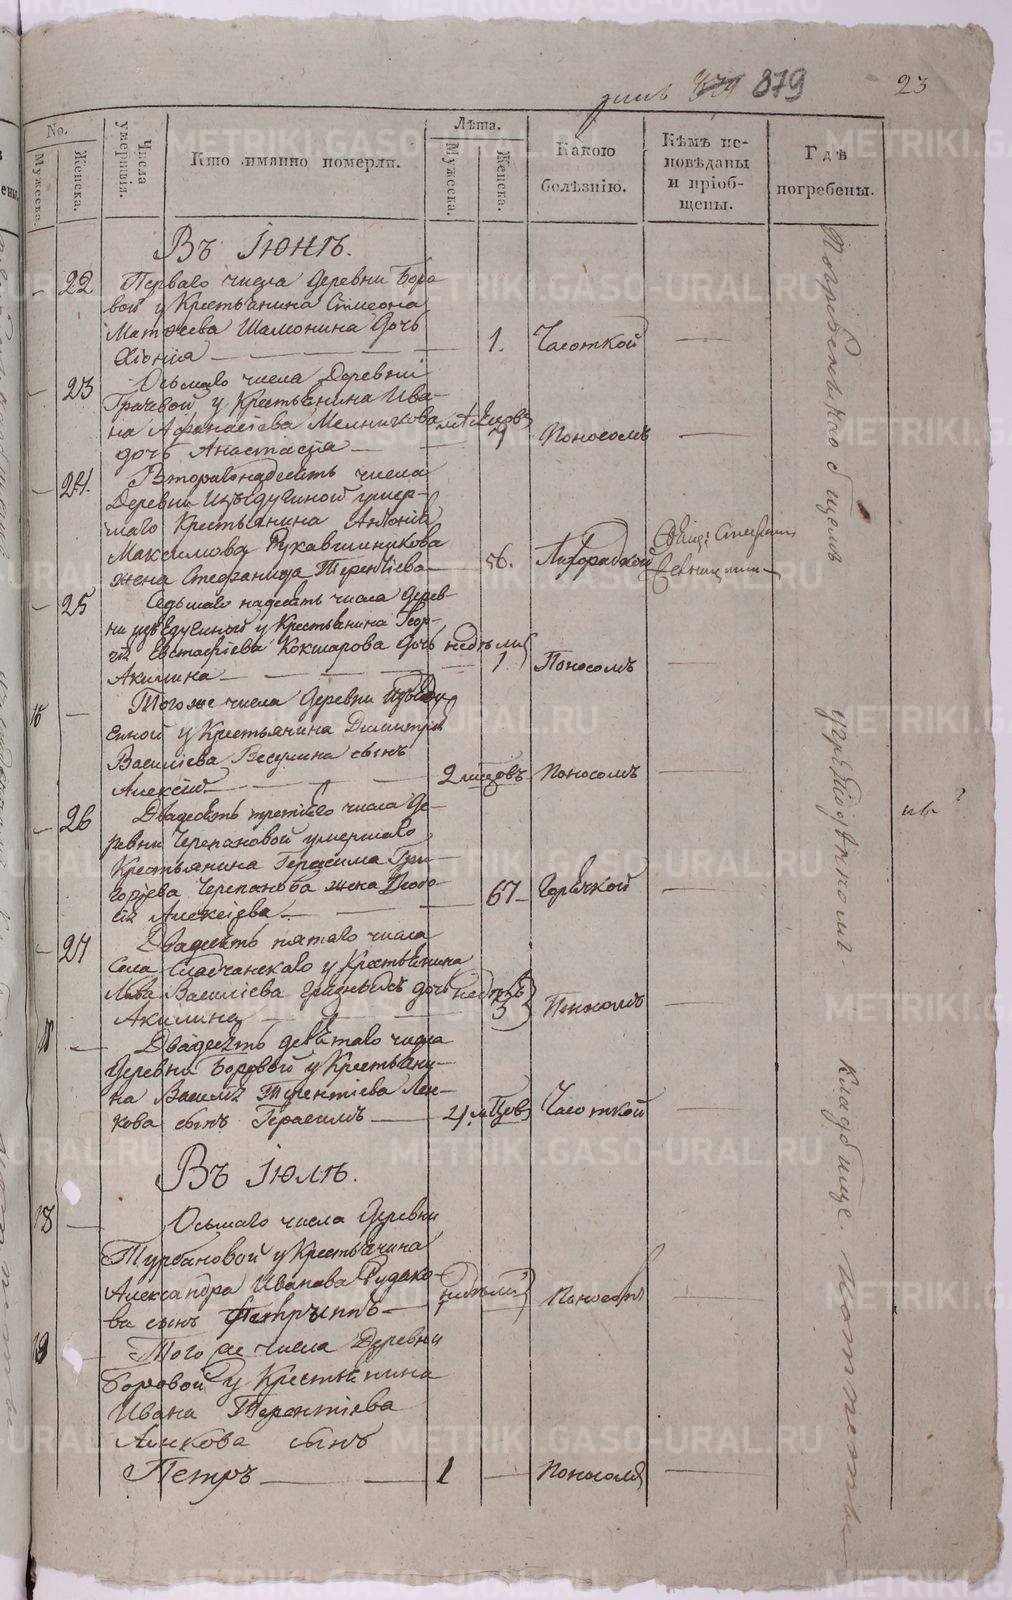 879
23
No.
Мужеска.
Женска.
Числа умершія.
Кто имянно померли.
Лѣта.
Мужеска.
Женска.
Какою
болѣзнію.
Кѣмъ ис-
повѣданы
и пріоб-
щены.
Гдѣ
погребены.
Въ Іюнѣ.
22 Перваго числа Деревни Боро
вой у Крестьянина Сімеона
Матѳеева Шамонина Дочь
Хіонія 1. Часоткой
23 Осьмаго числа Деревни
Грачевой у Крестьянина Ива-
на Афанасіева Мелникова
дочь Анастасія Поносомъ
24. Втораго надесять числа
Деревни Изъѣдугиной умер-
шаго Крестьянина Антонія
Максимова Рукавишникова
жена Стефанида Терентіева 56. Лихорадкой
25 Седьмаго надесять числа Дерев-
ни изъѣдугиной у Крестьянина Геор-
гія Евстафіева Кокшарова Дочь недѣли
Акилина 1 Поносомъ
Тогоже числа Деревни Изъѣду
гиной у Крестьянина Димитрія
Василіева Весулина сынъ
Алексій 2 мѣсецовъ Поносомъ
26 Двадесять третіяго числа Де-
ревни Черепановой умершаго
Крестьянина Герасима Гри-
горіева Черепанова жена Ѳеодо-
сія Алексіева 67 Горячкой
27 Двадесять пятаго числа
Села Сладчанскаго у Крестьянина
Льва Василіева дочь недѣль
Акилина 3 Поносомъ
Двадесять девѣтаго числа
Деревни Боровой у Крестьяни-
на Василія Терентіева Лен-
кова сынъ Герасимъ Часоткой
Въ Іюлѣ.
18 Осьмаго числа Деревни
Турбановой у Крестьянина
Александра Иванова Рудако-
ва сынъ недѣли Поносомъ
19 Того же числа Деревни
Боровой у Крестьянина
Ивана Терентіева
Ленкова сынъ
Петръ 1 Поносомъ
Погребены на общемъ
учрежденномъ
кладбище.
METRIKI.GASO-URAL.RU